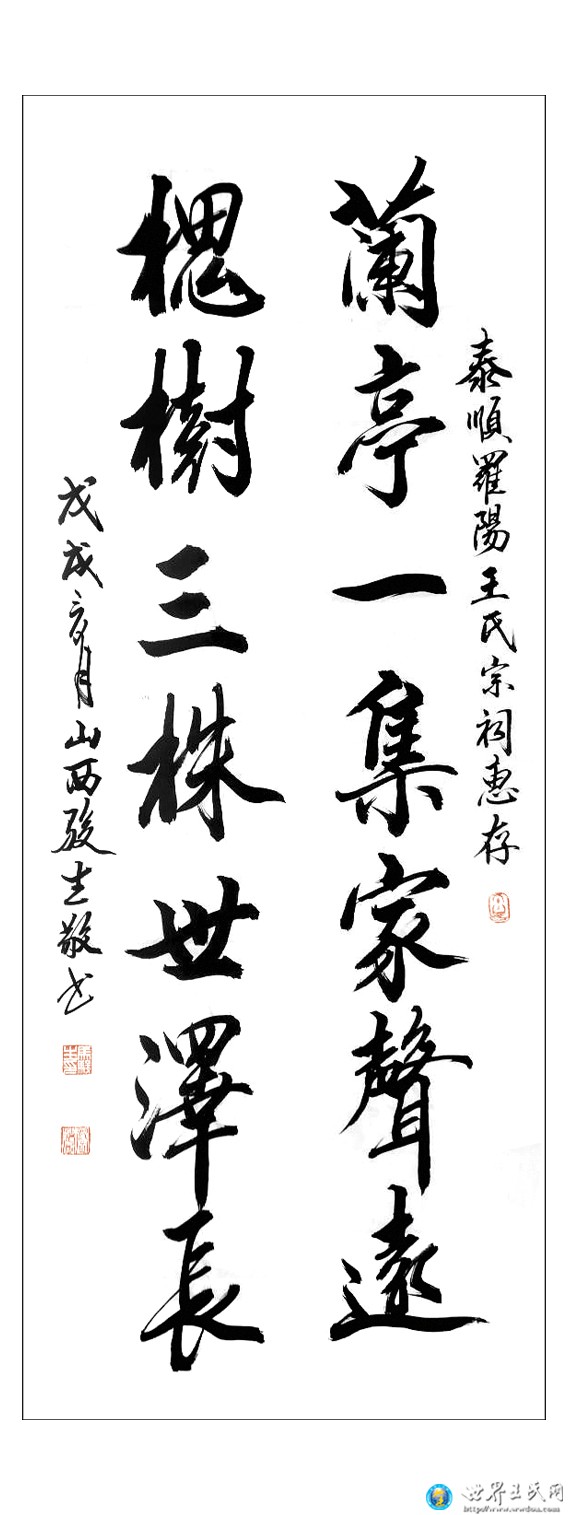 泰順羅陽王氏宗祠惠存
蘭亭一集家聲遠
槐樹三株世澤長
戊戌亥月山西駿生敬书
世界王氏网
http://www.wwdoa.com